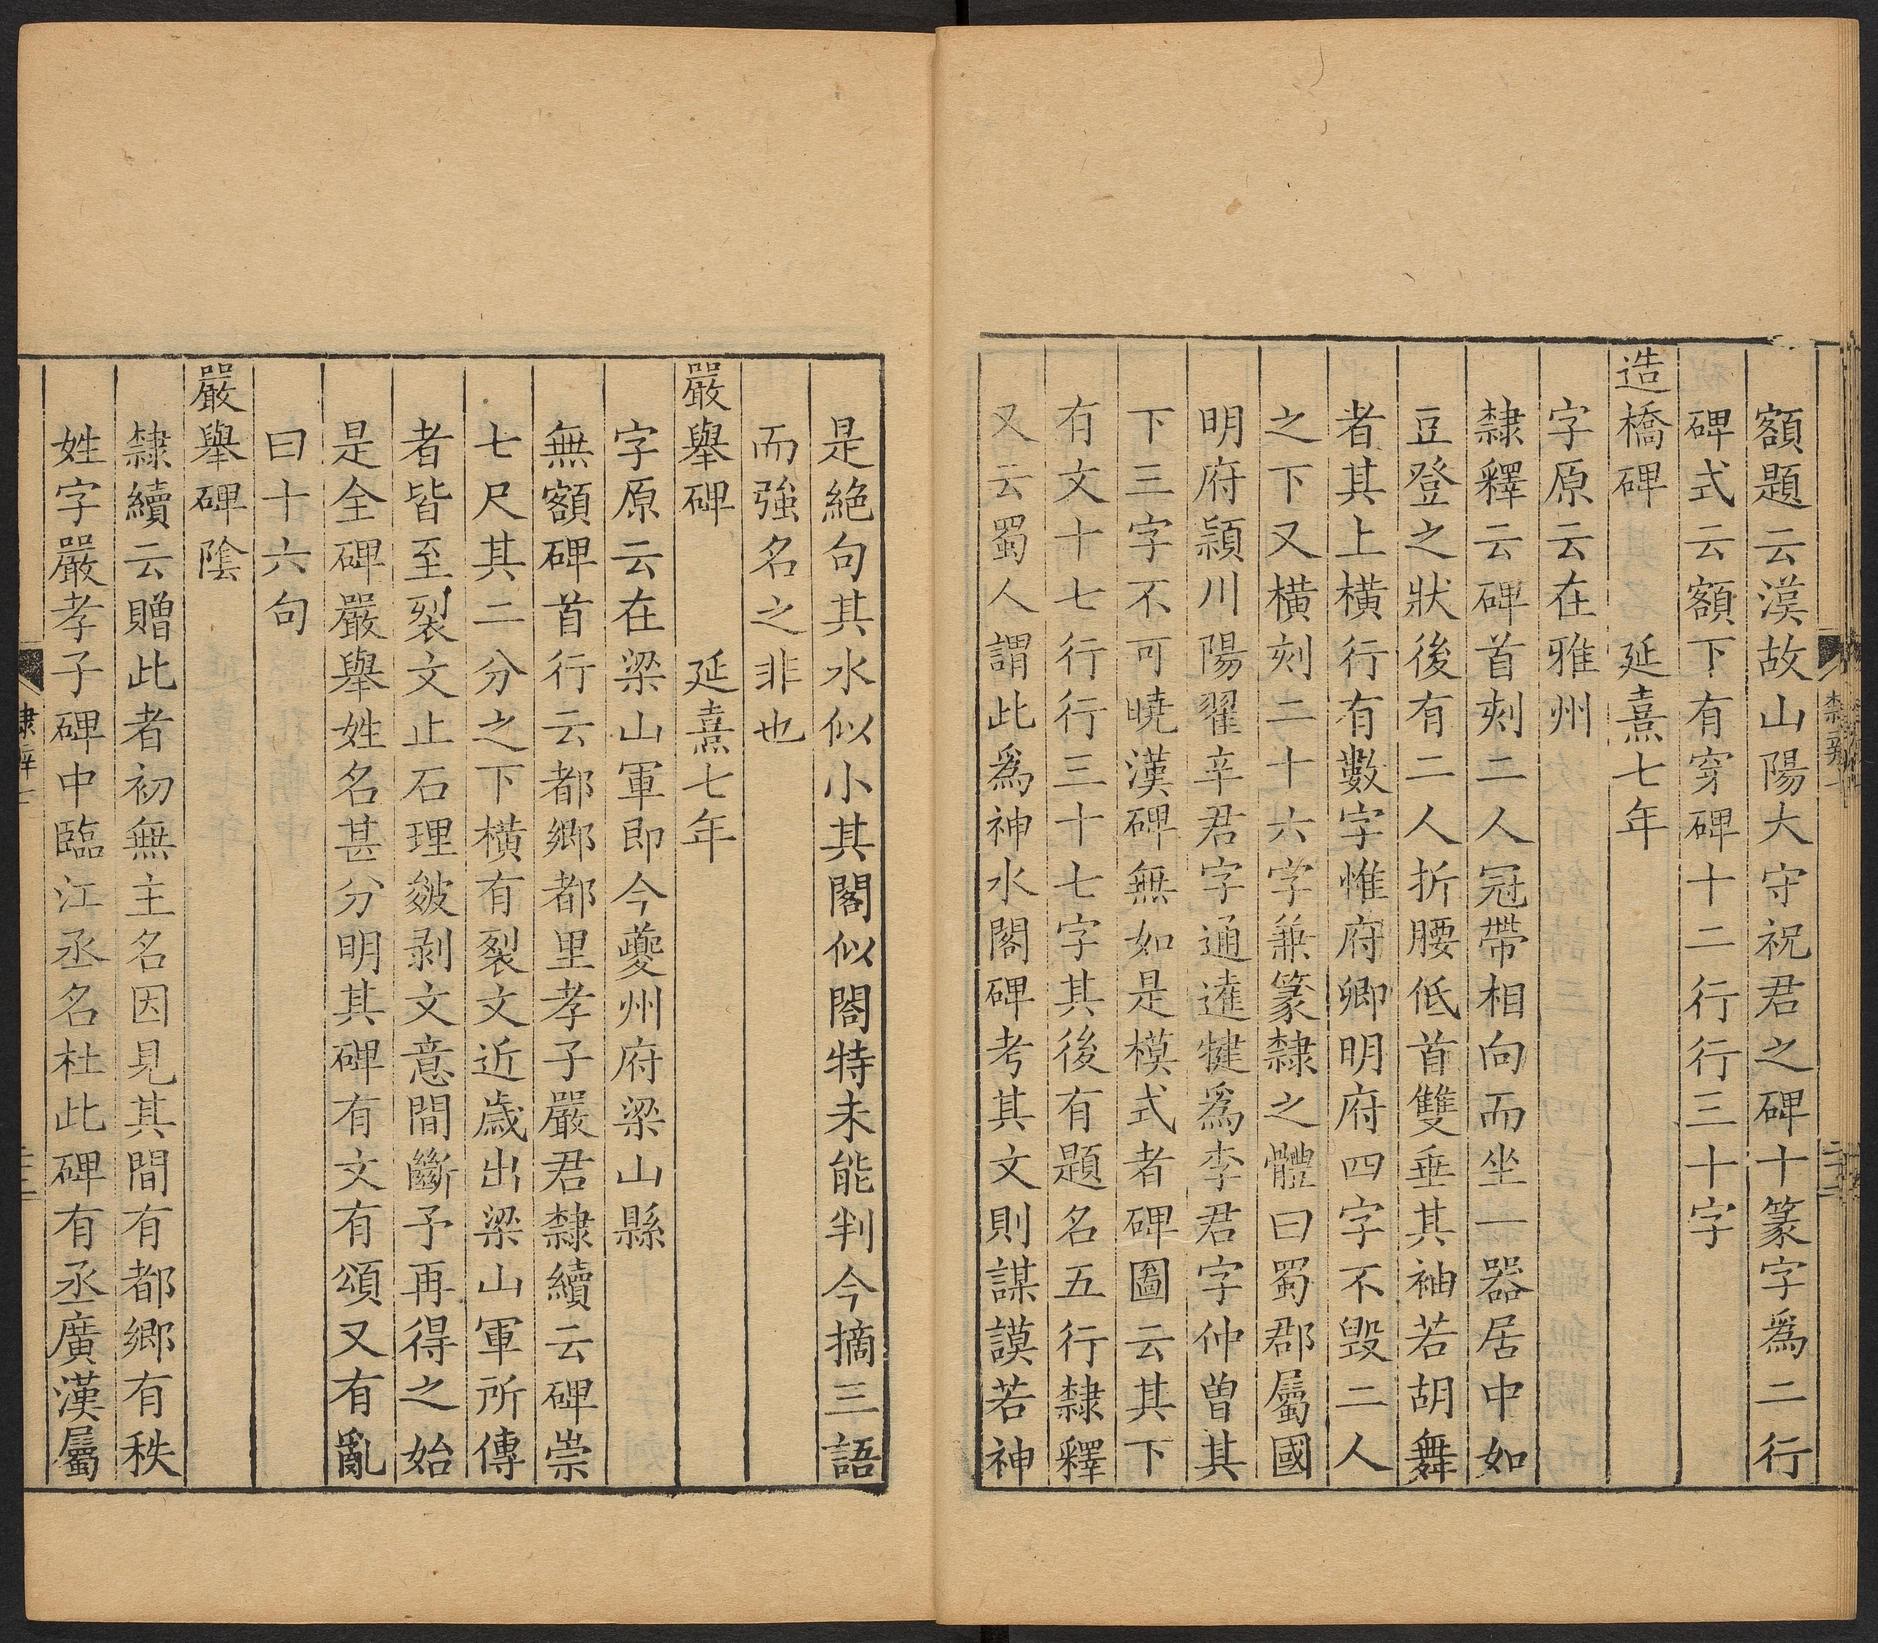 額題云漢故山陽大守祝君之碑十篆字爲二行
碑式云額下有穿碑十二行行三十字
造橋碑 延熹七年
字原云在雅州
隸釋云碑首刻二人冠帶相向而坐一器居中如
豆登之狀後有二人折腰低首雙垂其袖若胡舞
者其上橫行有數字惟府卿明府四字不毁二人
之下又橫刻二十六字兼篆隸之體曰蜀郡屬國
明府潁川陽翟辛君字通達犍爲李君字仲曾其
下三字不可曉漢碑無如是模式者碑圖云其下
有文十七行行三十七字其後有題名五行隸釋
又云蜀人謂此爲神水閣碑考其文則謀謨若神
是絶句其水似小其閣似閤特未能判今摘三語
而強名之非也
嚴舉碑 延熹七年
字原云在梁山軍即今夔州府梁山縣
無額碑首行云都鄉都里孝子嚴君隸續云碑崇
七尺其二分之下橫有裂文近歲出梁山軍所傳
者皆至裂文止石理皴剥文意間斷予再得之始
是全碑嚴舉姓名甚分明其碑有文有頌又有亂
曰十六句
嚴舉碑陰
隸續云贈此者初無主名因見其間有都鄉有秩
姓字嚴孝子碑中臨江丞名杜此碑有丞廣漢屬